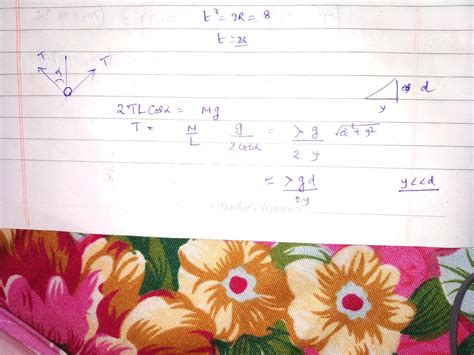 t³ = 2R = 8
t = 2s
T α T
d
y
2TL Cosα = Mg
T = M/L g/2cosα = λ/2 g/y √d²+y²
≈ λgd/2y y<<d
Teacher's Signature